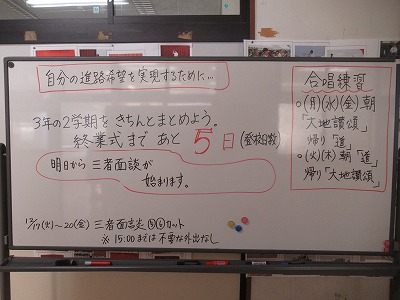 自分の進路希望を実現するために…
3年の2学期をきちんとまとめよう。
終業式まで あと 5日(登校日数)
明日から 三者面談が
始まります。
12/17(火)〜20(金) 三者面談 ⑤⑥カット
※ 15:00までは不要な外出なし
合唱練習
○(月)(水)(金)朝
「大地讃頌」
帰り「道」
○(火)(木)朝「道」
帰り「大地讃頌」